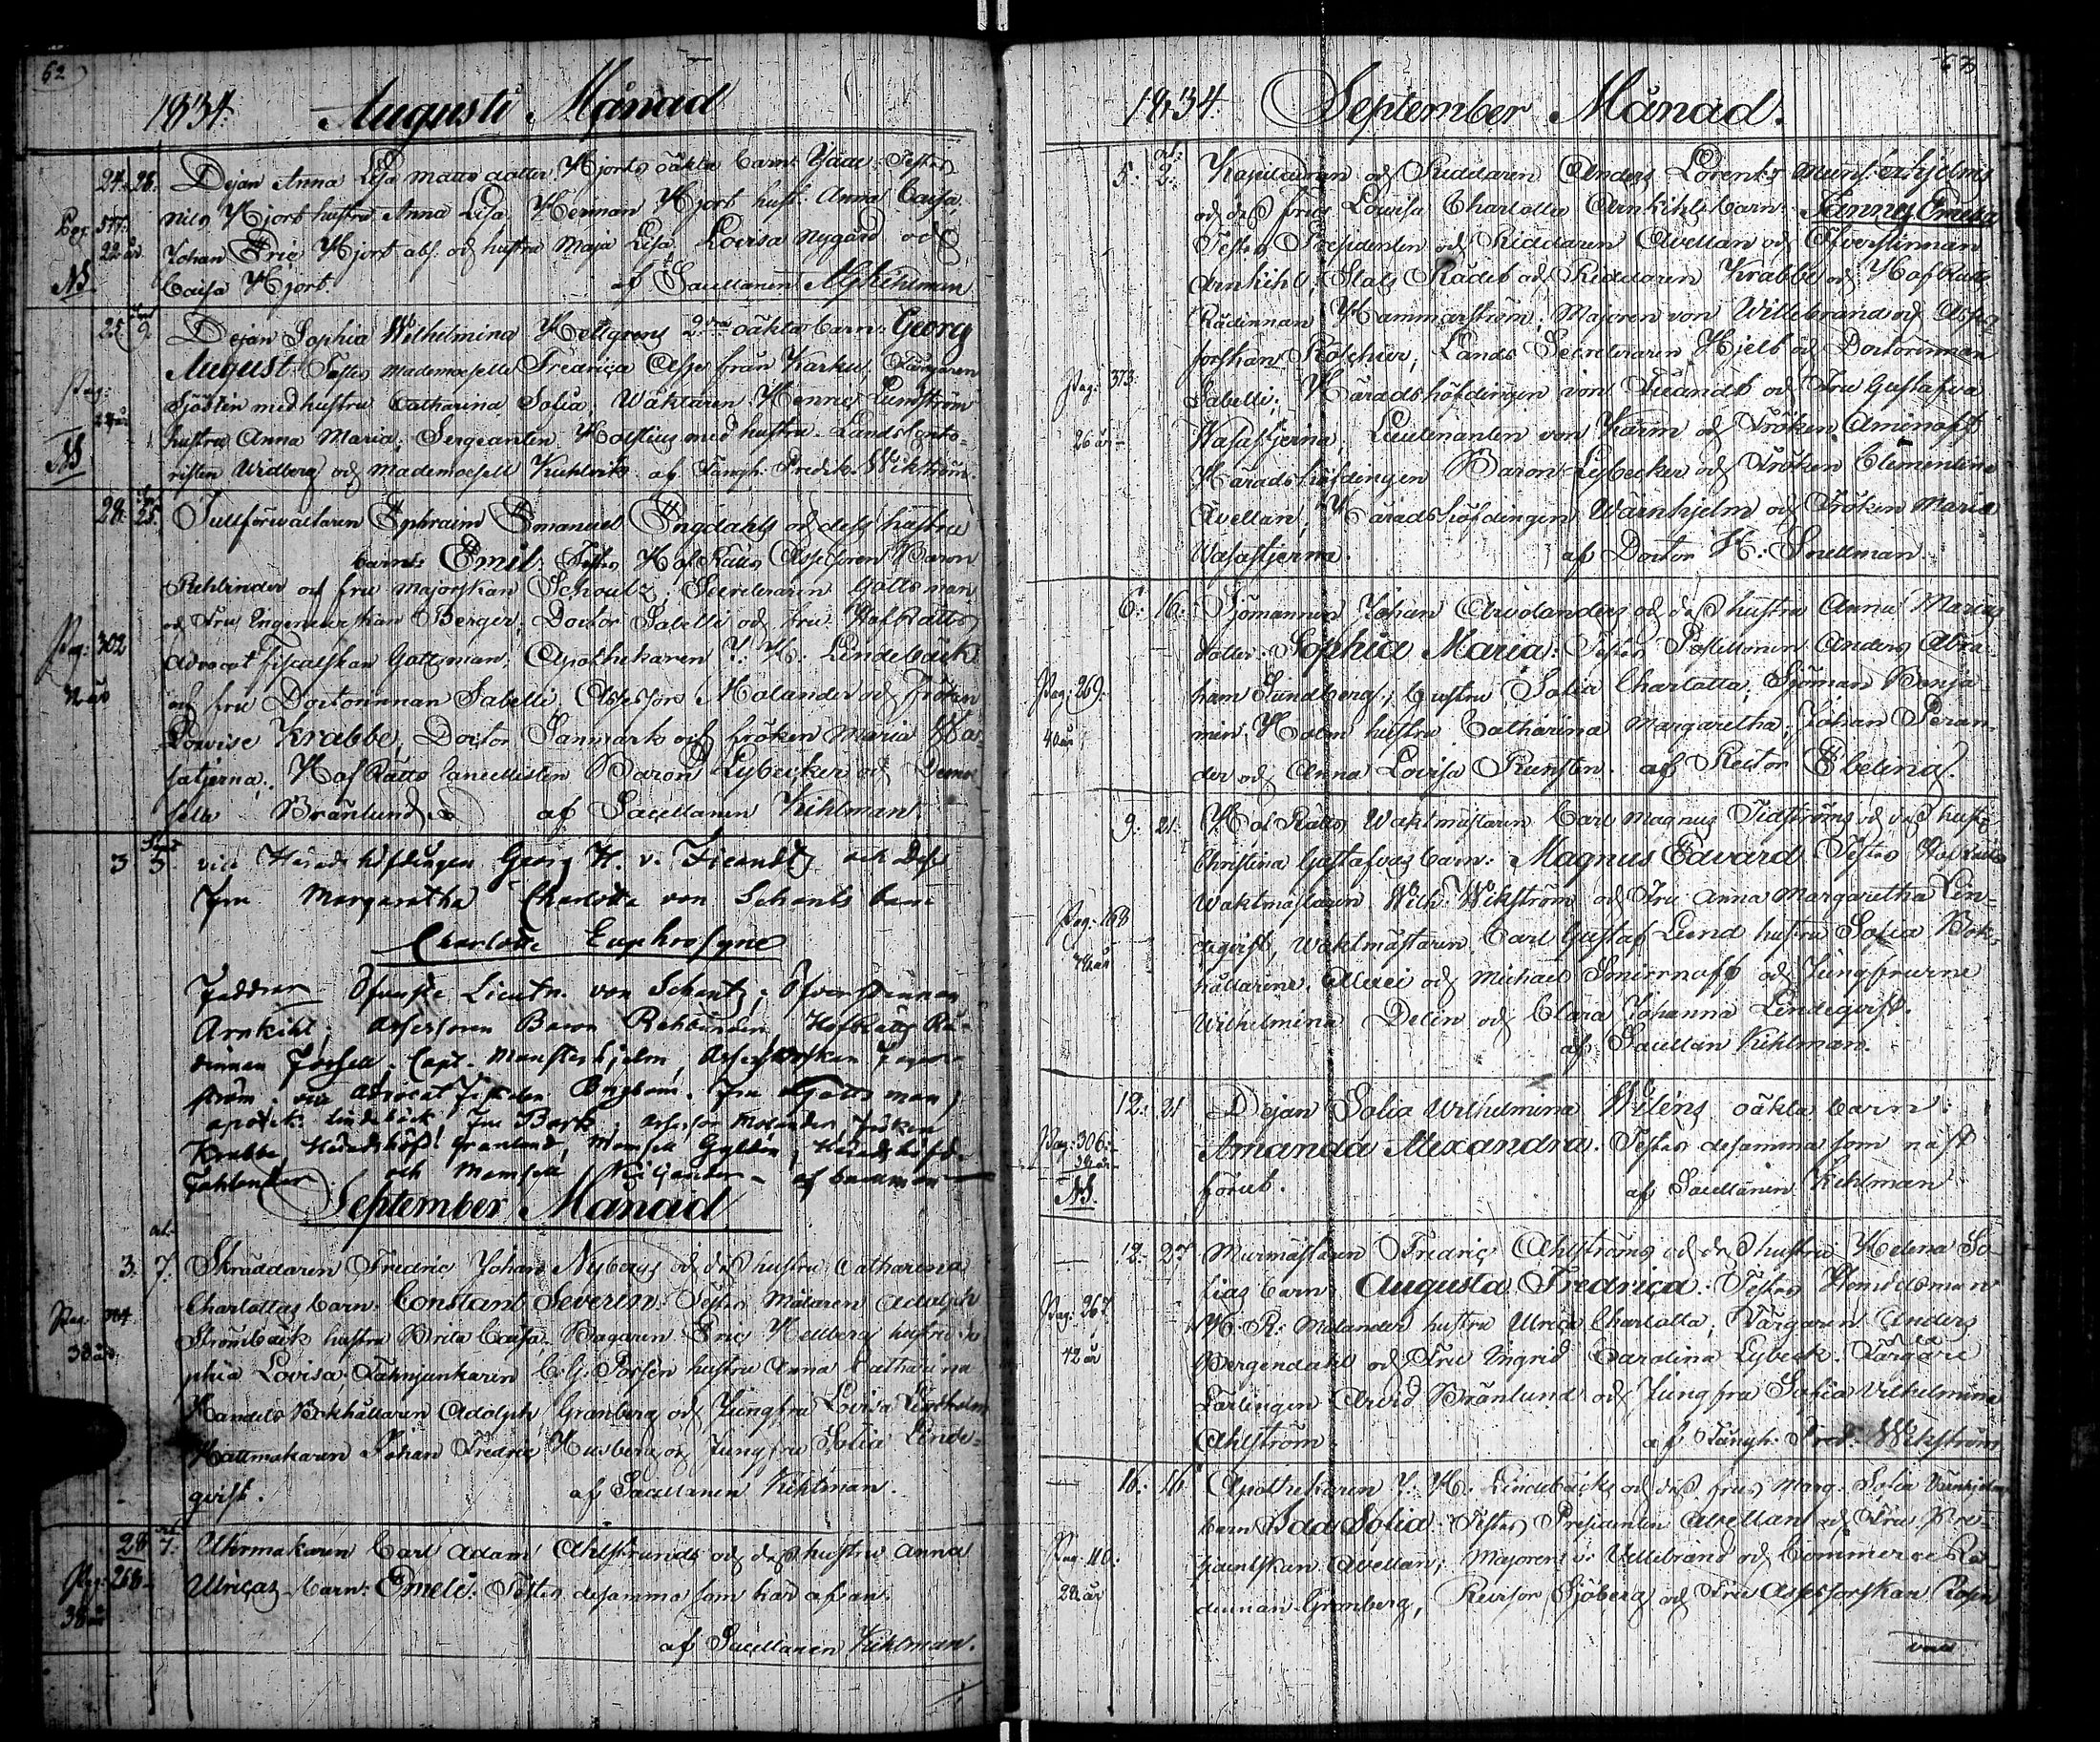 62
1834. Augusti Månad
24. 28. Pigan Anna Lisa Mattsdotter Hjorts oäkta barn: Testes
Nils Hjort hustru Anna Lisa, Herman Hjort hust. Anna Caisa,
Pag. 577. Johan Eric Hjort abs. och hustru Maja Lisa. Lovisa Nygård och
22 år Caisa Hjort. af Sacellanen Kihlman
25. 9. Pigan Sophia Wilhelmina Hellgrens 2dra oäkta barn: Georg
August. Testes Mademoiselle Fredrica från Karku,
Pag: Sjöstén med hustru Catharina Sofia, Waktaren Henric Lundström
hustru Anna Maria, Sergeanten Holstius med hustru. Lands Conto-
risten Widberg och Mademoisell af Fångh. Predik. Wikström.
28. 25. Tullförwaltaren Ephraim Emanuel Engdahls och dess hustru
barn: Emil. Testes HofRätts Assessoren Baron
Rehbinder och fru Majorskan Schoultz, Secreteraren Gottsman
och Fru Ingenieurskan Berger, Doctor Sabelli och fru HofRätts
Pag: 302 Advocat Fiscalskan Gottsman, Apothekaren J. H. Lindebäck
och fru Doctorinnan Sabelli, Assessor Molander och Fröken
Lovise Krabbe, Doctor Sanmark och fröken Maria Wa-
satjerna, HofRätts Cancellisten Baron Lybecker och Demoi-
selle Brånlund af Sacellanen Kihlman.
3 Sept 5. vice Häradshöfdingen Georg H. v. Fieandt och dess
Fru Margaretha Charlotta von Schantz barn
Charlotta Euphrosyne
Faddrar Öfverste Lieutn. von Schantz; Öfverstinnan
Arnkihl; Assessoren Baron Rehbinder, HofRätts Rå-
dinnan Forsell, Capt. Munsterhjelm, Assessorskan
ström; vice Advocat Fiskalen Fru Gottsman;
apothek. Lindebäck, Fru Bark; Assessor Molander, Fröken
Krabbe, Häradshöfd. Granlund, Mamsell Gyldén, Häradshöfd.
och Mamsell
September Månad
3. 7. Skräddaren Fredric Johan Nybergs och dess hustru Catharina
Charlottas barn: Constant Severin: Testes Målaren Adolph
Pag. 304 Strömbäck hustru Brita Caisa, Bagaren Eric Hellberg hustru So-
38 år phia Lovisa, Fahnjunkaren C. G. Forsén hustru Anna Catharina
Handels Bokhållaren Adolph Granberg och Jungfru Lovisa Lindholm
Hattmakaren Johan Fredric Husberg och Jungfru Sofia Linde-
qvist. af Sacellanen Kihlman.
28 7. Uhrmakaren Carl Adam Ahlstrands och dess hustru Anna
Pag: 268 Ulricas barn: Emele. Testes desamma som här ofvan.
38 år
af Sacellanen Kihlman.
63
1834. September Månad.
5. 2. och Riddaren Anders Lorents Munsterhjelms
och dess frus Lovisa Charlotta Arnkihls barn: Fanny Emelia
Testes Presidenten och Riddaren Avellan och Öfverstinnan
Arnkihl, Stats Rådet och Riddaren Krabbe och HofRätts
Rådinnan Hammarström, Majoren von Willebrand och Asses-
sorskan Kolchier, Lands Secreteraren Hjelt och Doctorinnan
Pag: 373. Sabelli, Häradshöfdingen von Fieandt och Fru Gustafva
26 år Wasastjerna, Lieutenanten von Kærm och Fröken Aminoff
Häradshöfdingen Baron Lybecker och Fröken Clementine
Avellan, Häradshöfdingen Wärnhjelm och Fröken Maria
Wasastjerna. af Doctor H: Snellman.
6. 16. Sjömannen Johan Arvolanders och dess hustru Anna Marias
dotter: Sophia Maria: Testes Anders Abra-
Pag: 269. ham Sundberg, hustru Sofia Charlotta, Sjöman Benja-
40 år min Holm hustru Catharina Margaretha, Johan Peran-
der och Anna Lovisa Runsten. af Rector Ebeling.
9. 21. HofRätts Waktmästaren Carl Magnus Tidströms och dess hustru
Christina Gustafvas barn: Magnus Edvard Testes HofRätts
Waktmästaren Wilh: Wikström och Fru Anna Margaretha Lin-
Pag: 168 deqvist, Waktmästaren Carl Gustaf Lund hustru Sofia Bok-
hållarene Alexei och Michael Smirnoff och Jungfrurne
Wilhelmina Delin och Clara Johanna Lindeqvist.
af Sacellan Kihlman.
12. 21 Pigan Sofia Wilhelmina Wiléns oäkta barn:
Pag: 306. Amanda Alexandra. Testes desamma som näst
förut. af Sacellanen Kihlman
12. 27 Murmästaren Fredric Ahlströms och dess hustru Helena So-
fias barn: Augusta Fredrica. Testes
Pag: 267. H. R. Malander hustru Ulrica Charlotta, Färgaren Anders
42 år Bergendahl och Fru Ingrid Carolina Lybeck. Färgare
Lärlingen Arvid Brånlund och Jungfru Sofia Vilhelmina
Ahlström. af Fångh. Pred: Wikström
16. 16 Apothekaren J. H. Lindebäcks och dess frus Marg. Sofia Värnhjelms
barn Ida Sofia. Testes Presidenten Avellan och Fru Pre-
Pag: 40. sidentskan Avellan, Majoren v. Villebrand och Commerce Rå-
28 år dinnan Grönberg, Revisor Sjöberg och Fru Assessorskan Rosen